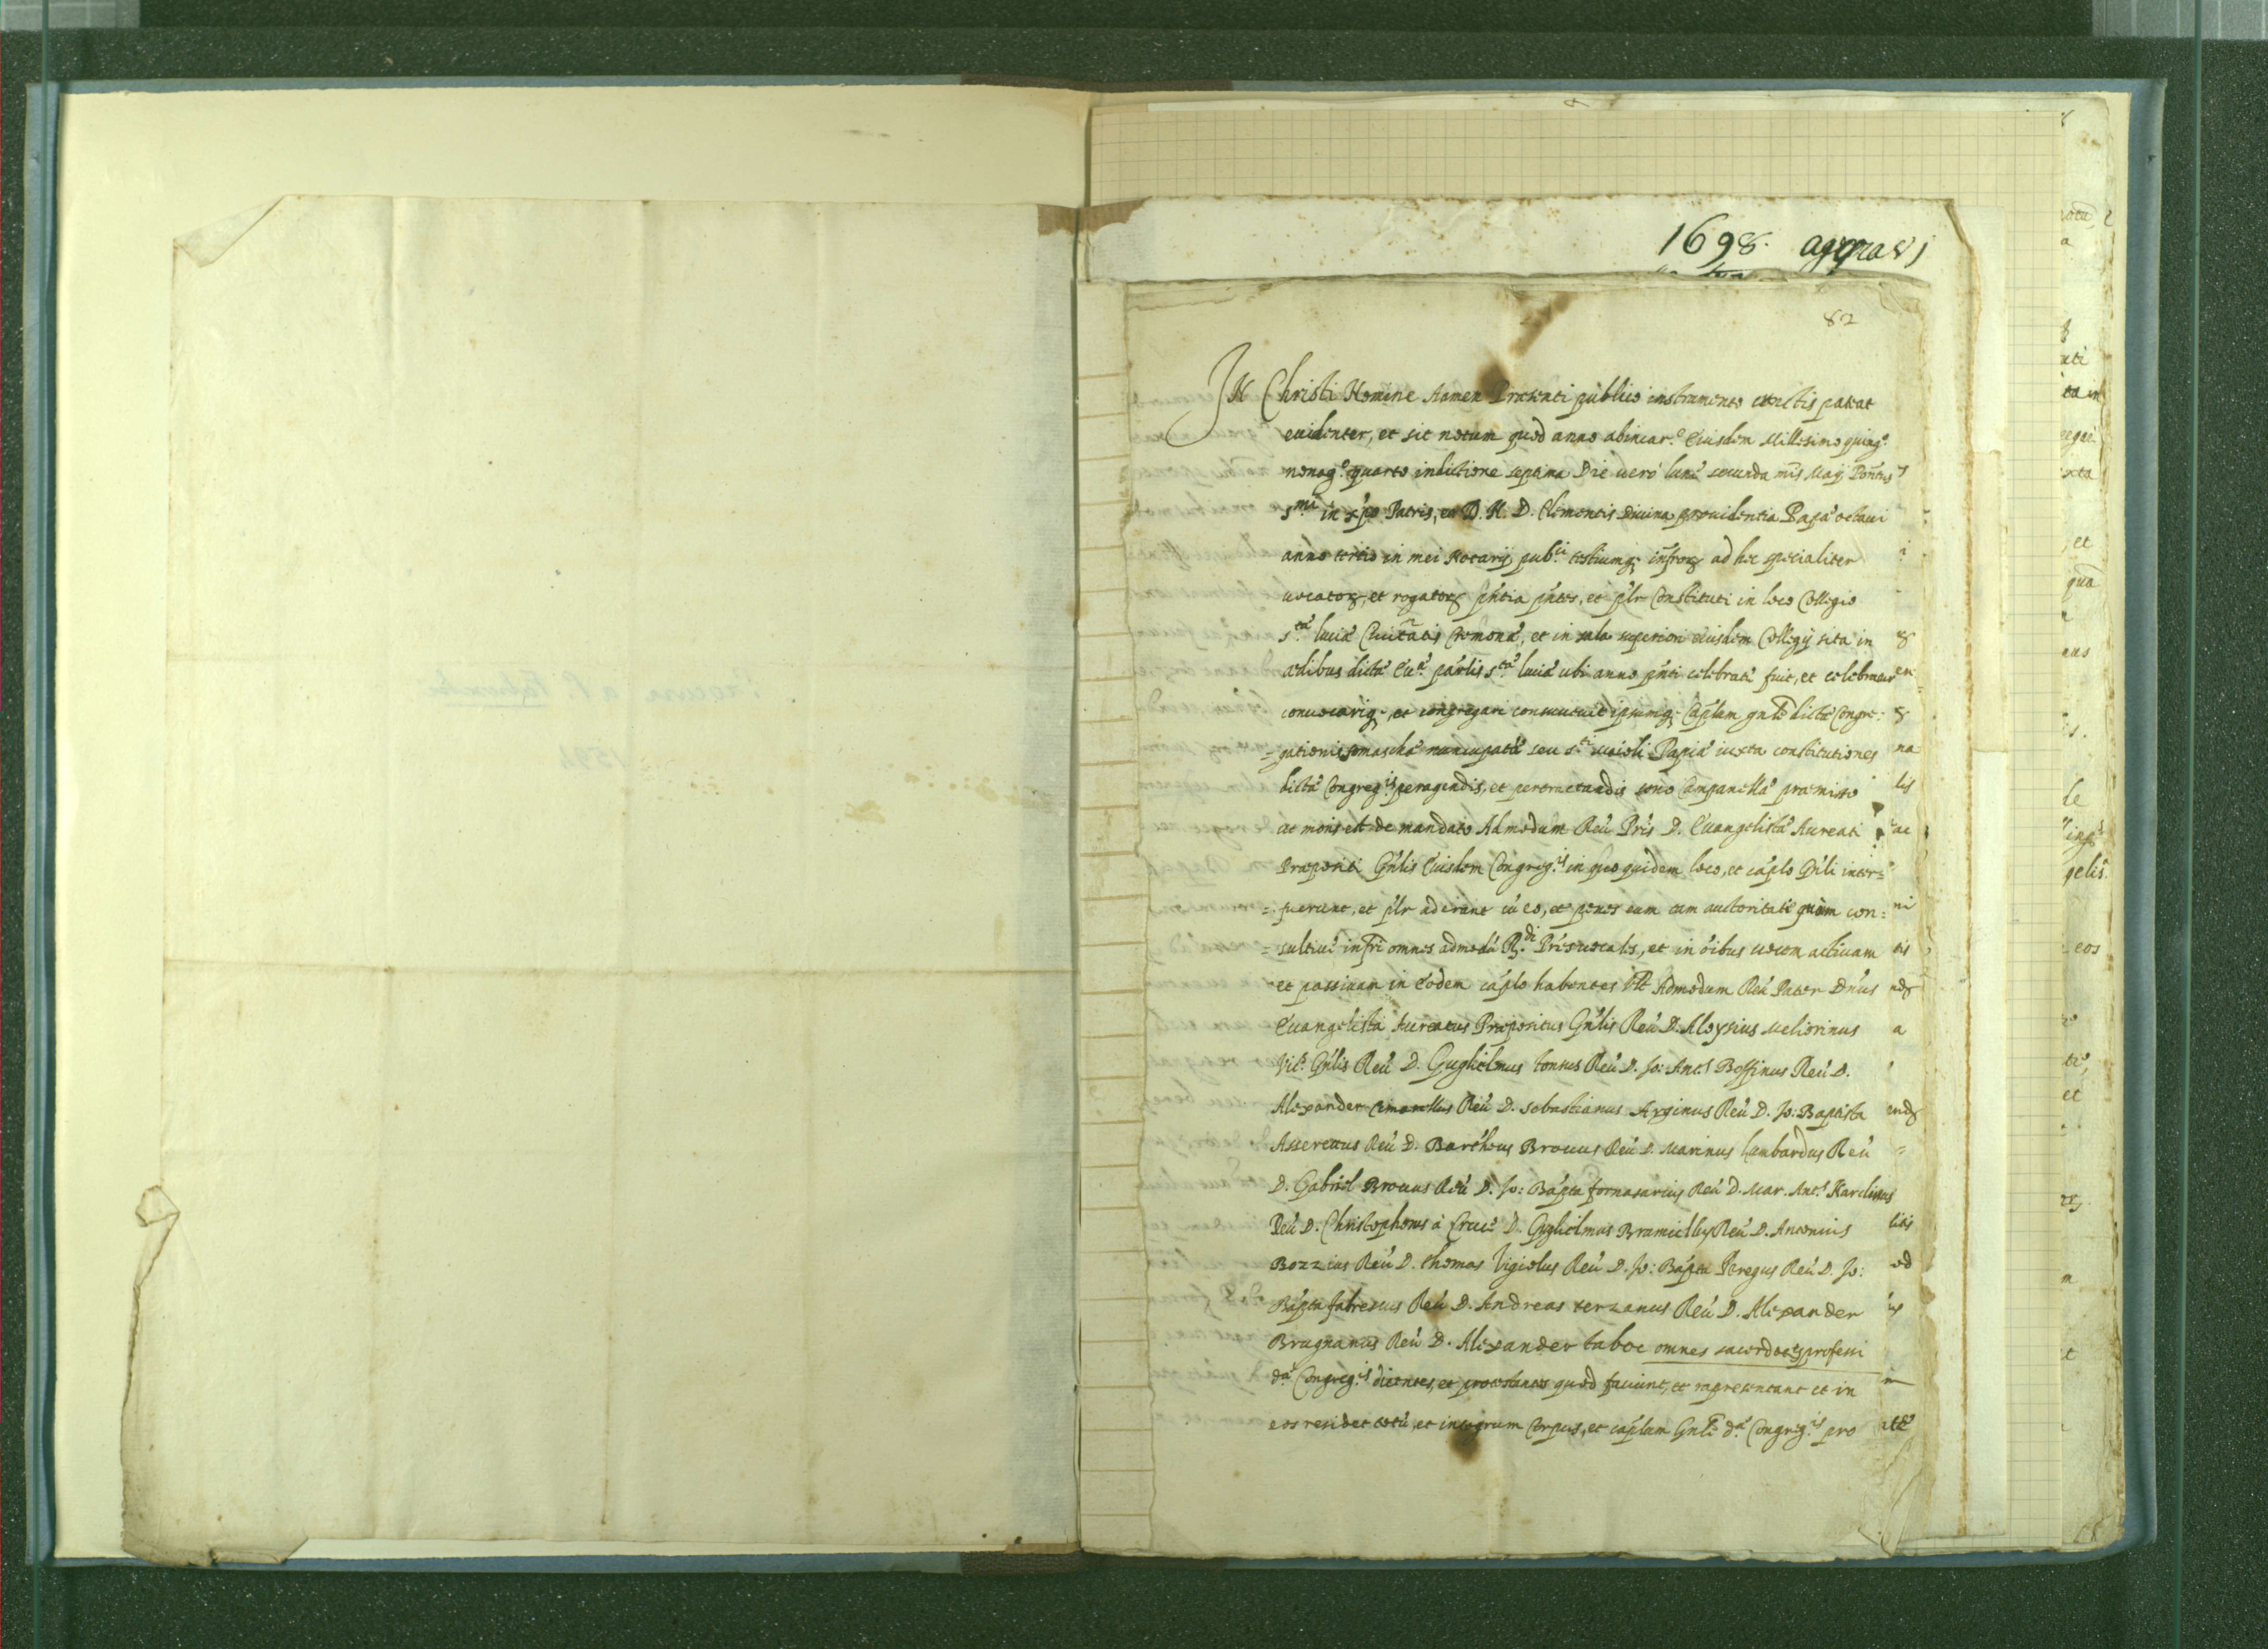 1698.
82
IN Christi Nomine Aamen Praesenti publico instrumento cunctis pateat
euidenter, et sit notum quod anno abincar.e Eiusdem Millesimo quing.o
nonag.o quarto indictione septima Die uero lunae secunda mis Maij Pontus
s.mi in xpo Patris, et D. N. D. Clementis Diuina prouidentia Papae octaui
anno tertio in mei Notarij pub.ci testiumq; infror ad hec specialiter
uocator, et rogator pntia pntes, et plr Constituti in loco Collegio
S.tae luciae Ciuitatis Cremonae, et in sala superiori eiusdem Collegij sita in
aedibus dictae parlis S.tae luciae ubi anno pnti celebrati fuit, et celebratur
conuocariq;, et congregari consueuit ipsumq; Caplum gnle dictae Congre:
=gationis somaschae nuncupatae seu s.ti maioli Papiae iuxta constitutiones
dictae Congreg.is peragendis, et pertractandis sono Campanellae praemisso
ut moris est de mandato Admodum Reu Pris D. Euangelistae Aureati
Praepositi Gnlis Eiusdem Congreg.is in quo quidem loco, et caplo Gnli inter=
=fuerunt, et plr aderant cu eo, et penes eum tam auctoritate quam con:
=sultiue infri omnes admodu R.di Pres uocales, et in oibus uocem actiuam
et passiuam in eodem caplo habentes Vt Admodum Reu Pater Dnus
Euangelista Aureatus Praepositus Gnlis Reu D. Aloysius Meliorinus
Vic.s Gnlis Reu D. Guglielmus tonsus Reu D. Jo: Ant.s Bossinus Reu D.
Alexander Cimarellus Reu D. Sebastianus Arginus Reu D. Jo: Baptista
Asseretus Reu D. Bartheus Brocus Reu D. Marinus lambardus Reu
D. Gabriel Brocus Reu D. Jo: Bapta fornasarius Reu D. Mar. Ant.s Nardinus
Reu D. Christophorus à Cruce D. Guglielmus Bramicellus Reu D. Antonius
Bozzius Reu D. thomas Vigiolus Reu D. Jo: Bapta Peregus Reu D. Jo:
Bapta fabrescus Reu D. Andreas terzanus Reu D. Alexander
Brugnanus Reu D. Alexander taboe omnes sacerdotes professi
d.ae Congreg.is dicentes, et protestantes quod faciunt, et repraesentant et in
eos residet totu, et integrum Corpus, et caplum Gnle d.ae Congreg.is pro